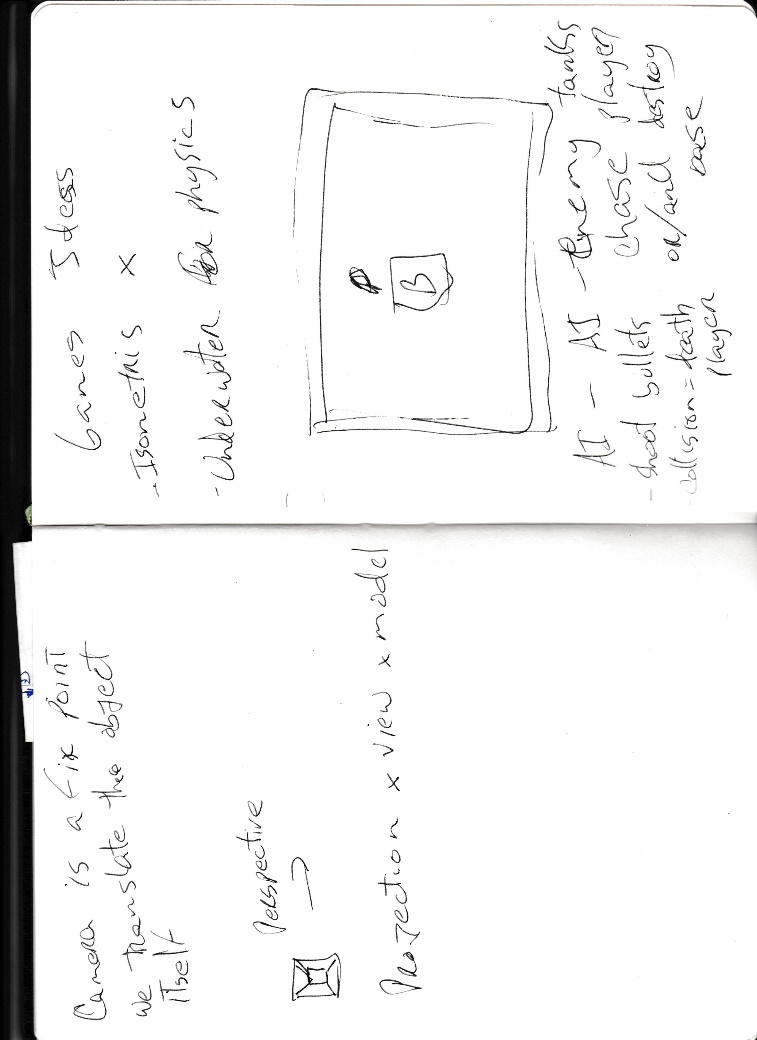 Camera is a fix point
we translate the object
itself
Perspective
Projection x view x model
Games Ideas
- Isometris x
- Underwater for physics
P
B
AI - AI - Enemy tanks
- shoot bullets chase player
- collision = death or/and destroy
player base